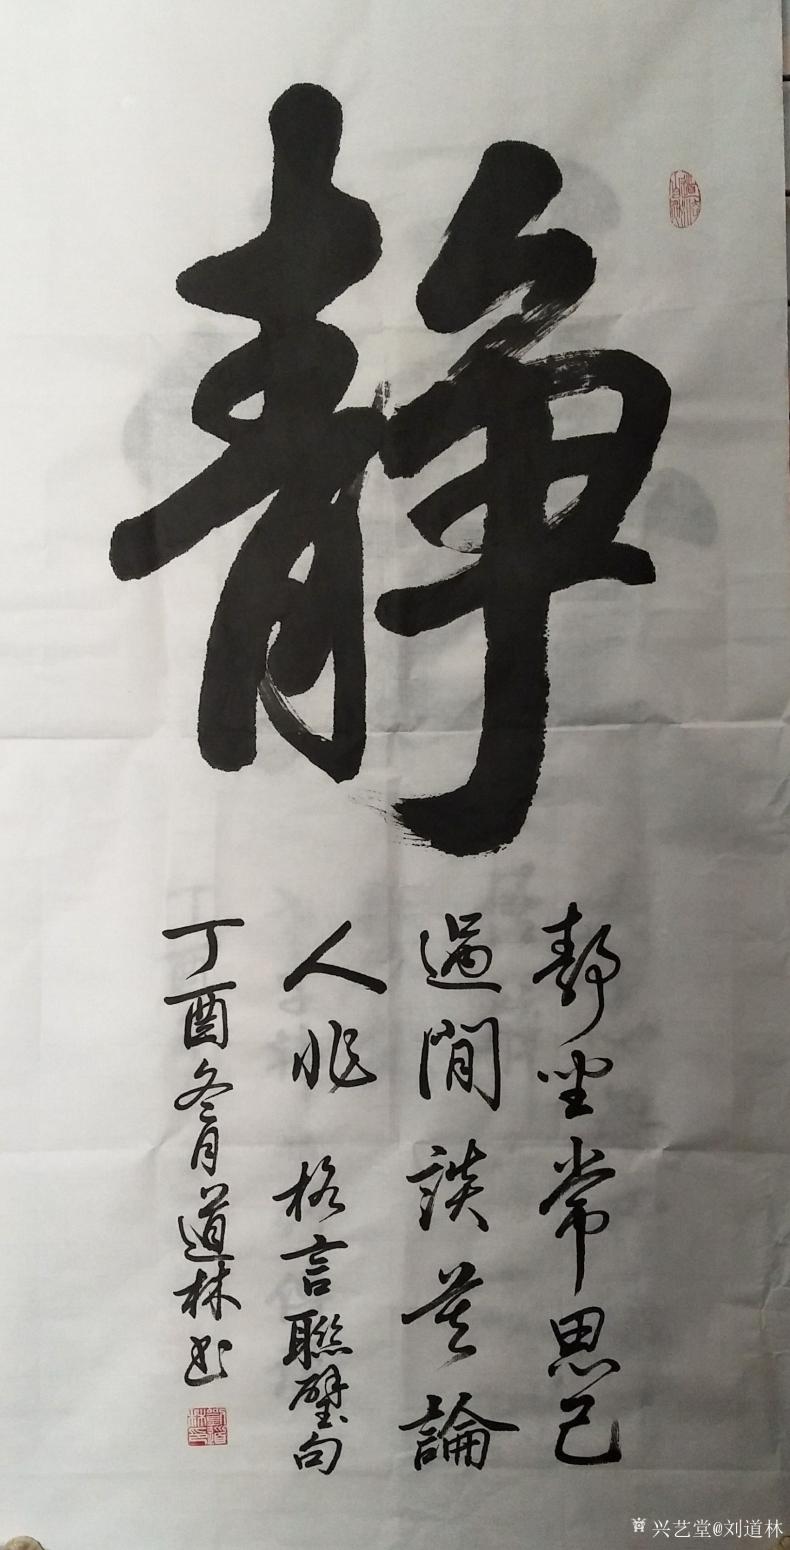 静
静坐常思己
過閒談莫論
人非 格言聯璧句
丁酉冬月道林书
兴艺堂@刘道林